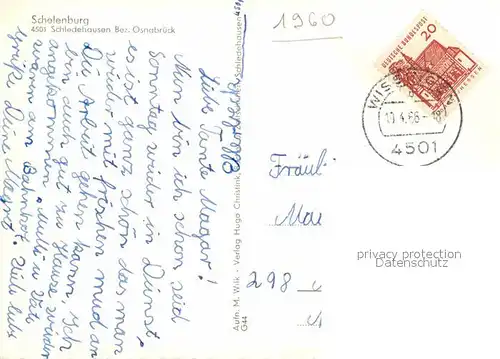 Schelenburg
4501 Schledehausen Bez. Osnabrück
1960
Liebe Tante Magar!
Nun bin ich schon seid
Sonntag wieder in Dienst.
es ist ganz schön das man
wieder mit frischen mud an
Die Arbeit gehen kann. Ich
bin auch gut zu Hause wieder
angekommen. Mutti u Vati
waren am Bahnhof. Viele liebe
Grüße Deine
Aufn. M. Wilk - Verlag Hugo
G44
Schledehausen
DEUTSCHE BUNDESPOST
20
HESSEN
4501
Fräul
298
privacy protection
Datenschutz